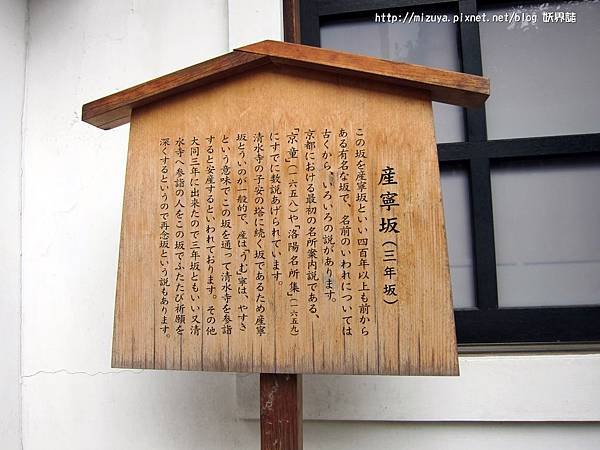 http://mizuya.pixnet.net/blog 妖界誌
産寧坂(三年坂)
この坂を産寧坂といい四百年以上も前から
ある有名な坂で、名前のいわれについては
古くからいろいろの説があります。
京都における最初の名所案内説である、
「京童」(一六五八)や「洛陽名所集」(一六五九)
にすでに数説あげられています。
清水寺の子安の塔に続く坂であるため産寧
坂とういのが一般的で、産は「うむ」寧は、やすき
という意味でこの坂を通って清水寺を参詣
すると安産するといわれております。その他
大同三年に出来たので三年坂ともいい又清
水寺へ参詣の人をこの坂でふたたび祈願を
深くするというので再念坂という説もあります。